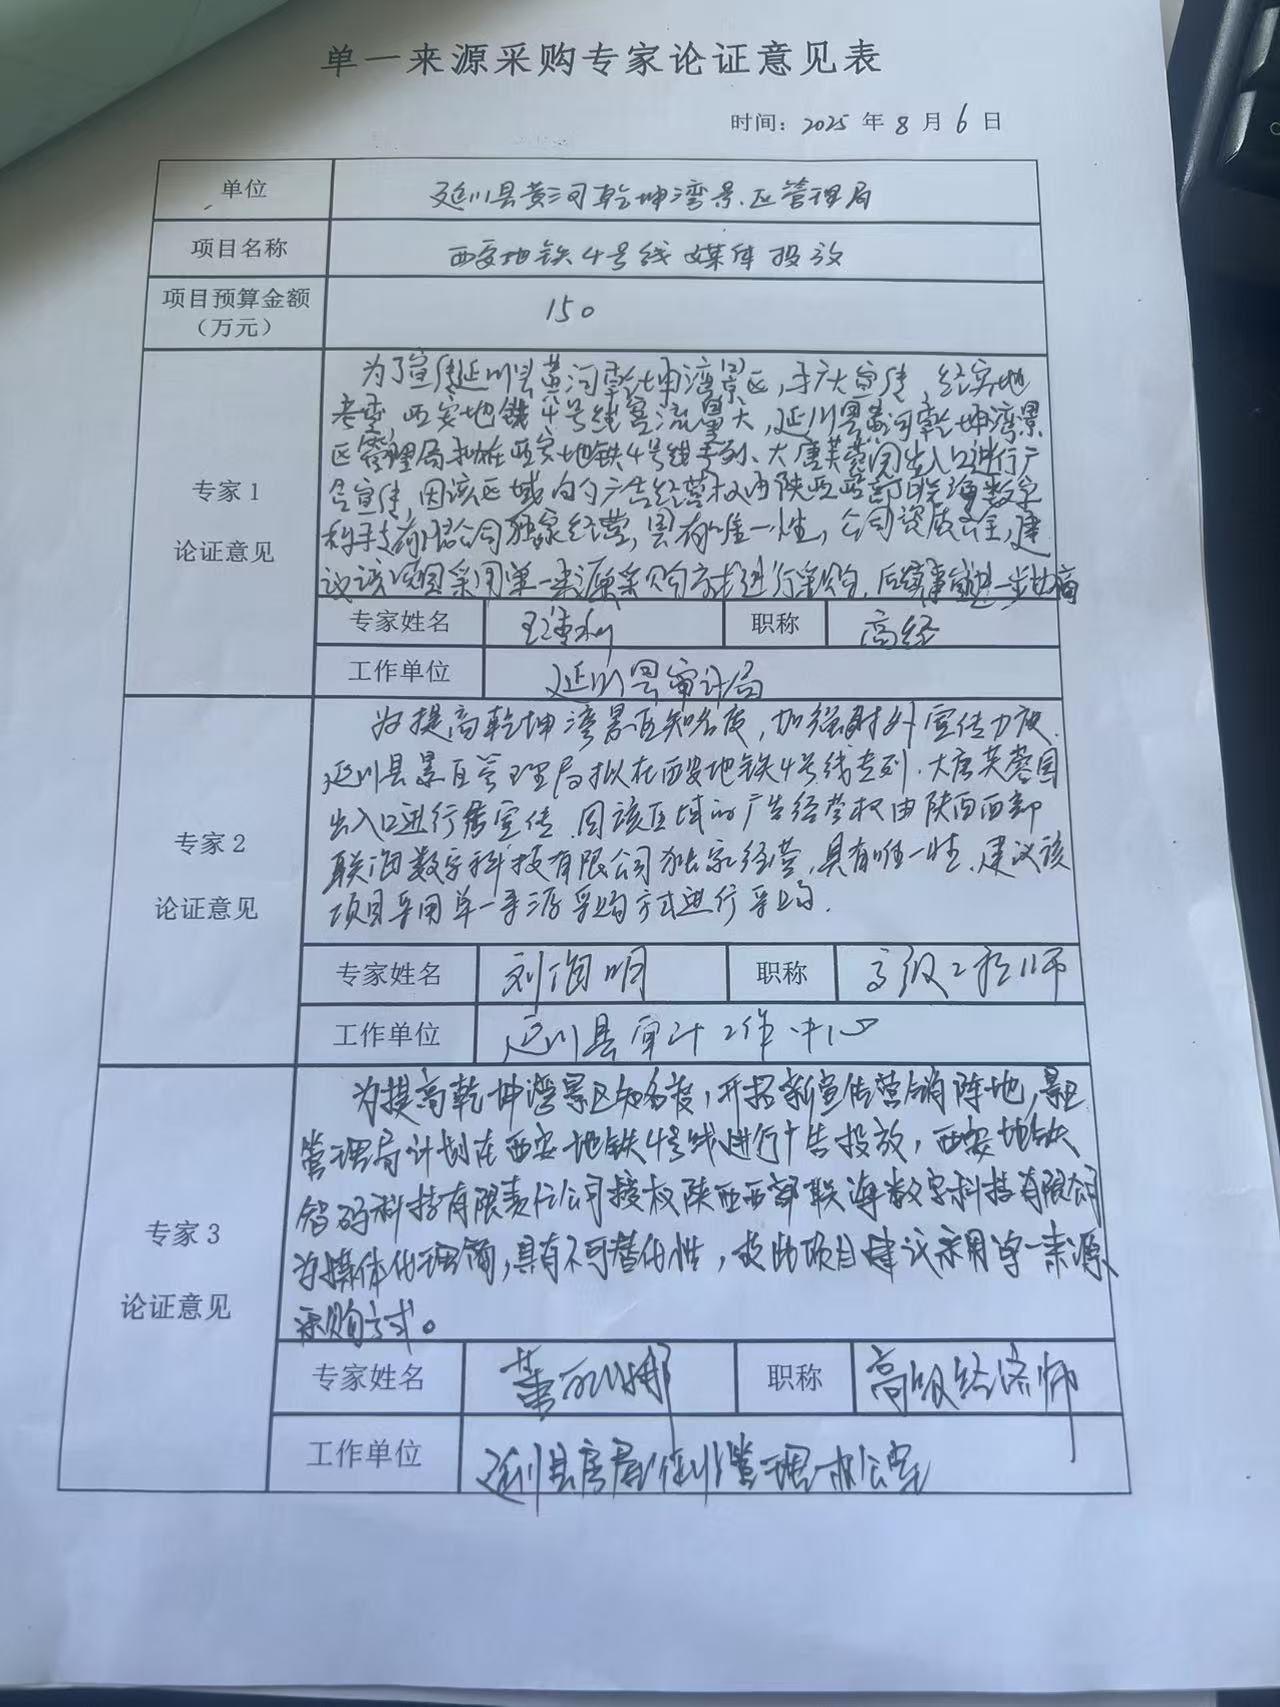 单一来源采购专家论证意见表
时间：2025 年 8 月 6 日
单位 延川县黄河乾坤湾景区管理局
项目名称 西安地铁4号线媒体投放
项目预算金额（万元） 150
专家1
论证意见
为了宣传延川县黄河乾坤湾景区，扩大宣传，经实地
考查，西安地铁4号线客流量大，延川县黄河乾坤湾景
区管理局拟在西安地铁4号线专列、大唐芙蓉园出入口进行广
告宣传，因该区域内的广告经营权由陕西西部联海数字
科技有限公司独家经营，具有唯一性，公司资质齐全，建
议该项目采用单一来源采购方式进行采购，后续事宜进一步协商
专家姓名 职称 高经
工作单位 延川县审计局
专家2
论证意见
为提高乾坤湾景区知名度，加强对外宣传力度，
延川县景区管理局拟在西安地铁4号线专列、大唐芙蓉园
出入口进行宣传，因该区域的广告经营权由陕西西部
联海数字科技有限公司独家经营，具有唯一性，建议该
项目采用单一来源采购方式进行采购.
专家姓名 刘海明 职称 高级工程师
工作单位 延川县审计工作中心
专家3
论证意见
为提高乾坤湾景区知名度，开拓新宣传营销阵地，景区
管理局计划在西安地铁4号线进行广告投放，西安地铁
科技有限责任公司授权陕西西部联海数字科技有限公司
为媒体代理商，具有不可替代性，故此项目建议采用单一来源
采购方式。
专家姓名 董 娜 职称 高级经济师
工作单位 延川县房屋征收管理办公室